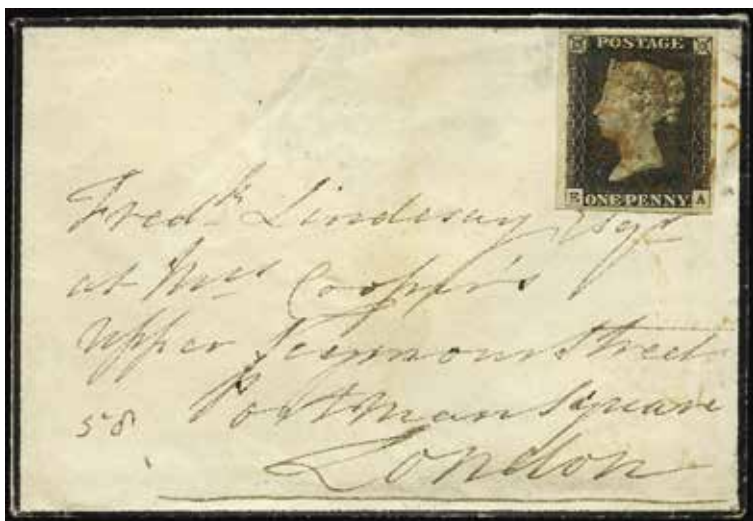 POSTAGE
E ONE PENNY A
Fredk Lindesay Esqr
at Mrs Cooper's
Upper Seymour Street
58 Portman Square
London